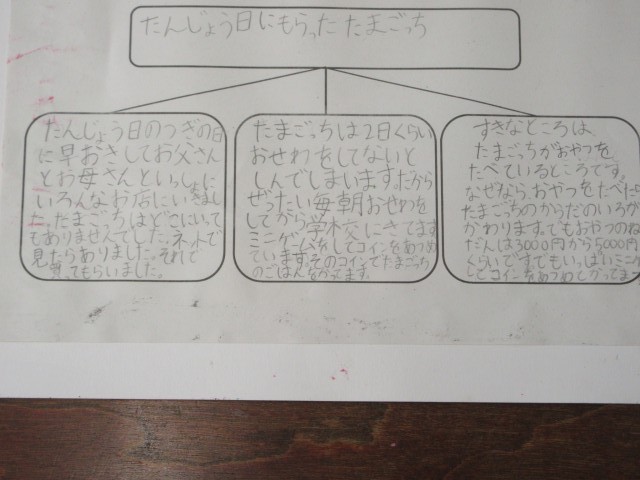 たんじょう日にもらった たまごっち
たんじょう日のつぎの日
に早おきしてお父さん
とお母さんといっしょに
いろんなお店にいきまし
た。たまごっちはどこにいって
もありませんでした。ネットで
見たらありました。それで
買ってもらいました。
たまごっちは2日くらい
おせわをしてないと
しんでしまいます。だから
ぜったい毎朝おせわを
してから学校にきてます。
ミニゲームをしてコインをあつめ
ています。そのコインでたまごっち
のごはんをかってます。
すきなところは、
たまごっちがおやつを
たべているところです。
なぜなら、おやつをたべた
たまごっちのからだのいろが
かわります。でもおやつのね
だんは3000円から5000円
くらいです。でもいっぱいミニゲ
してコインをあつめてかってま